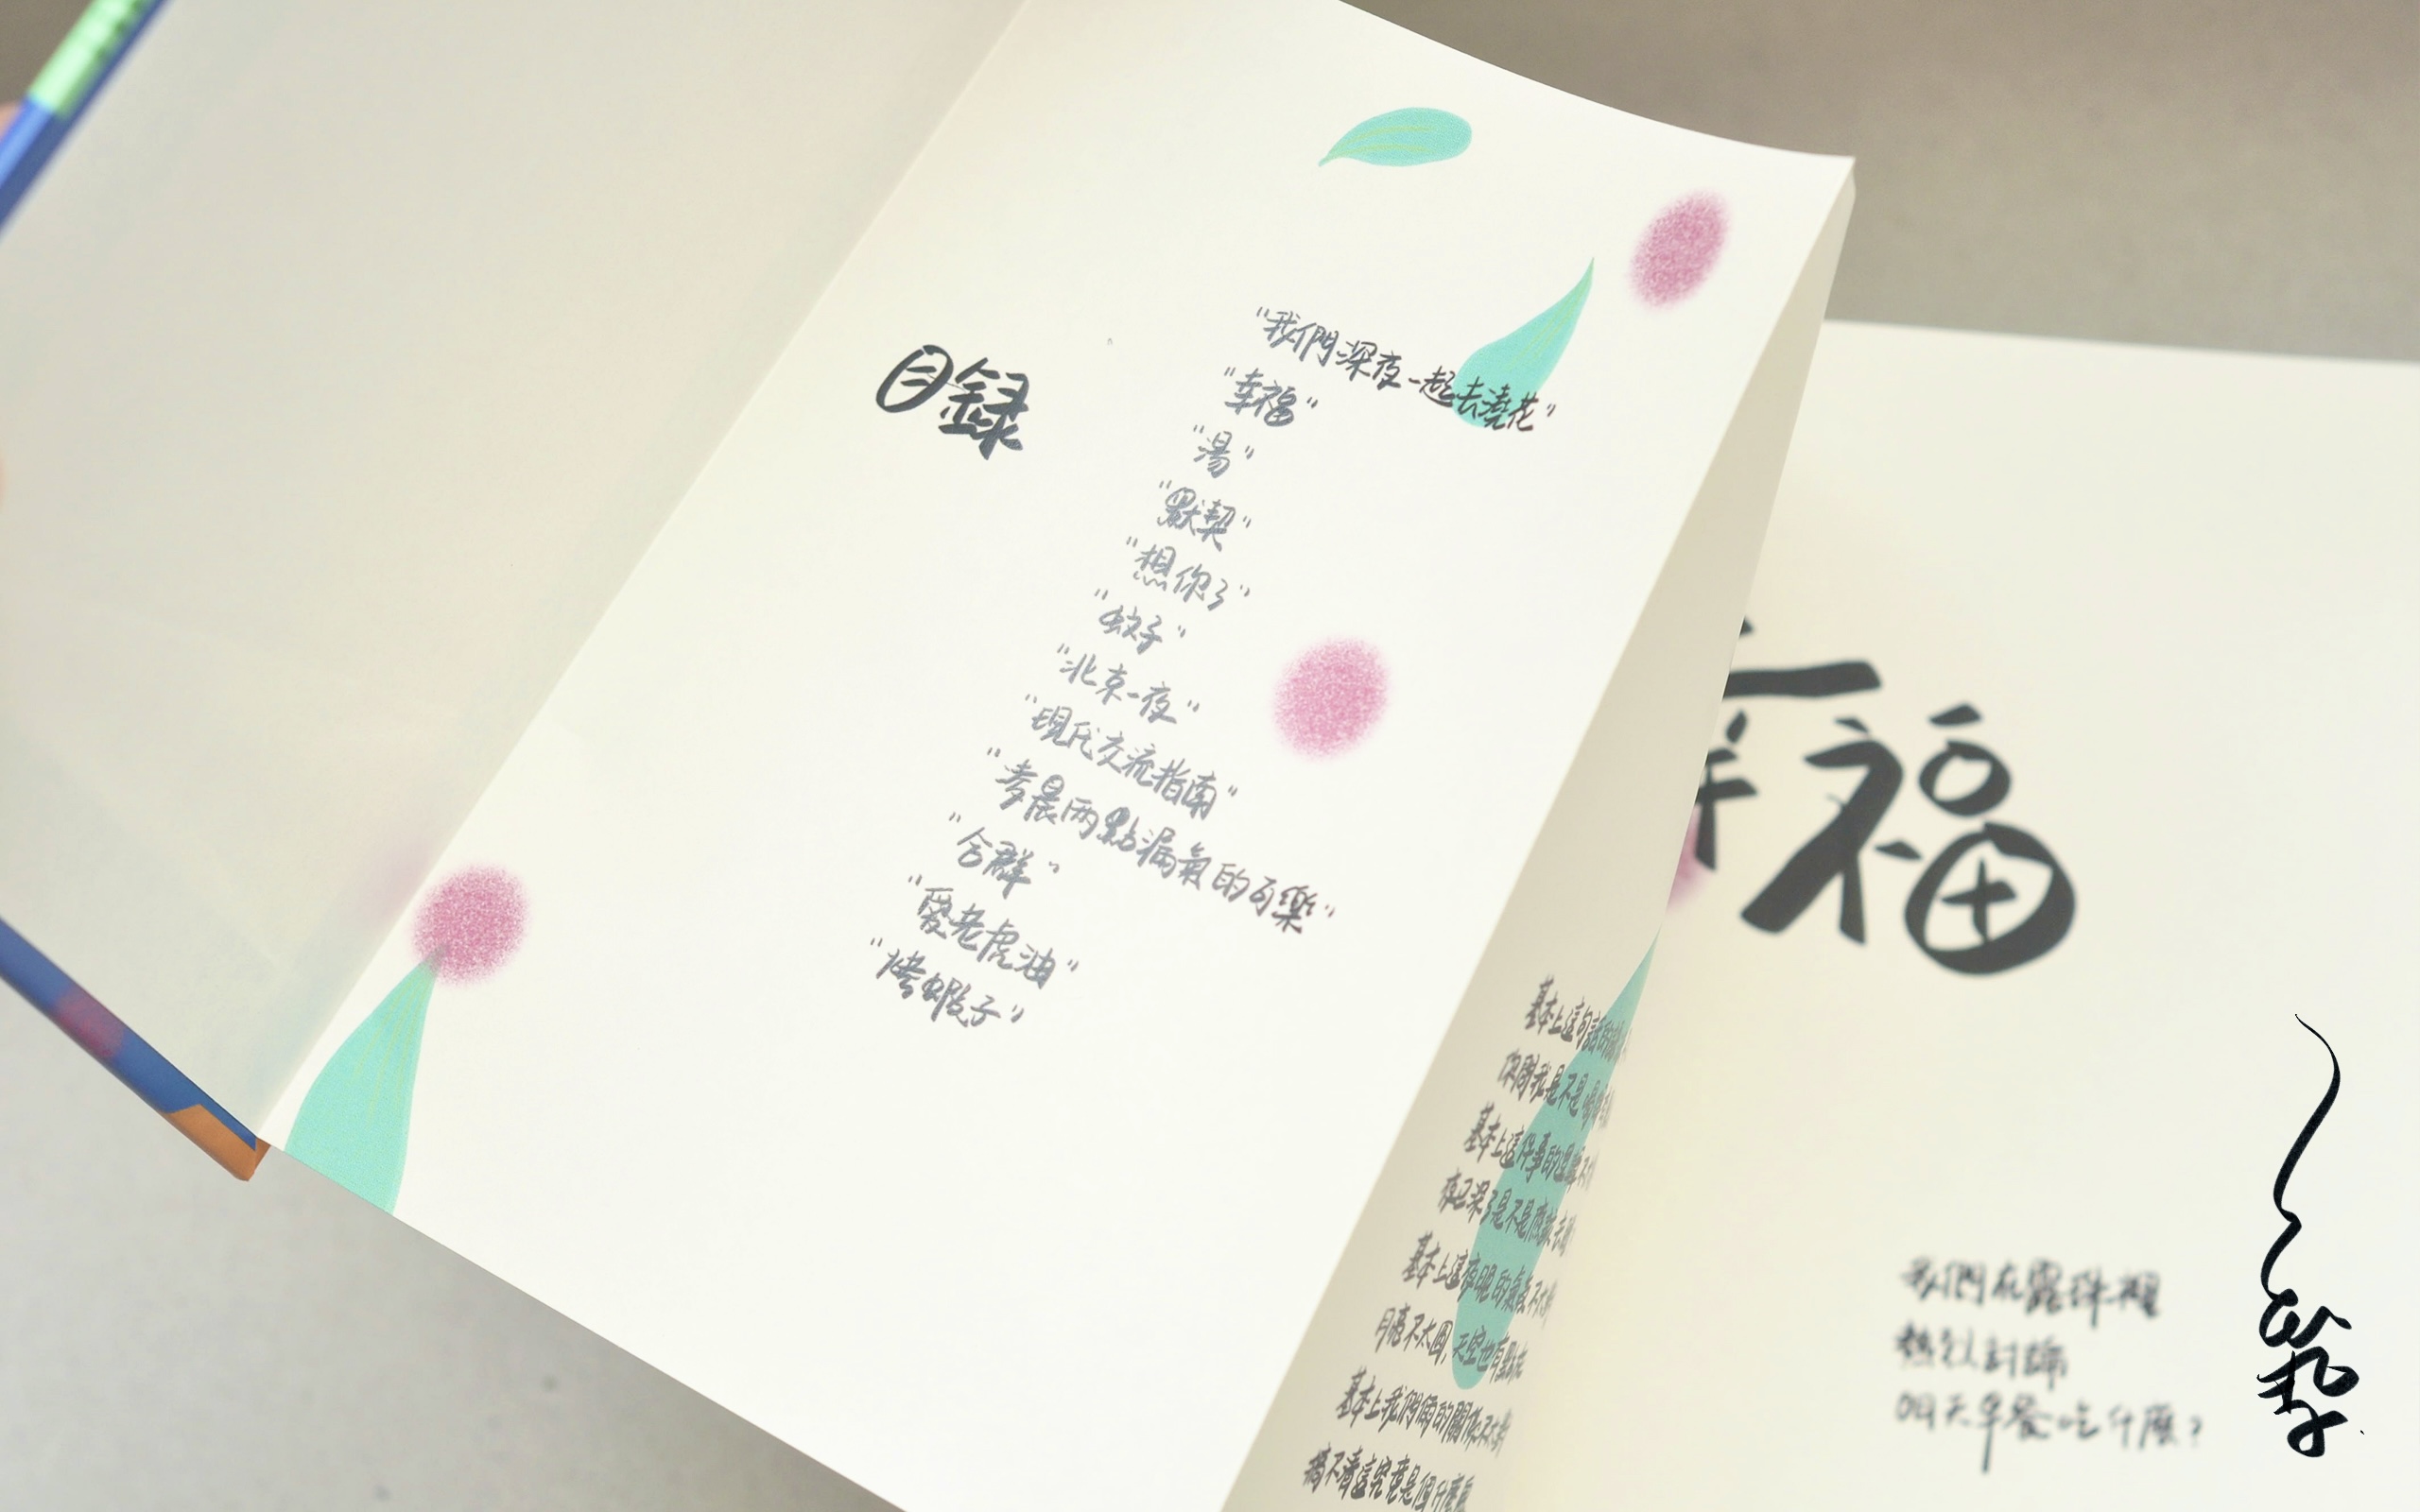 目録
"我們深夜一起去澆花"
"幸福"
"湯"
"默契"
"想你了"
"蚊子"
"北京一夜"
"現代交流指南"
"凌晨两點漏氣的可樂"
"合群"
"愛老虎油"
"烤蝦子"
基本上這句話的
你問我是不是喝
基本上這件事的邏輯不
夜已深了是不是應該去
基本上這夜晚的氣氛不太
月亮不太圓，天空也有點灰
基本上我們倆的關係不太
搞不清這究竟是個什麼
幸福
我們在露珠裡
熱烈討論
明天早餐吃什麼？